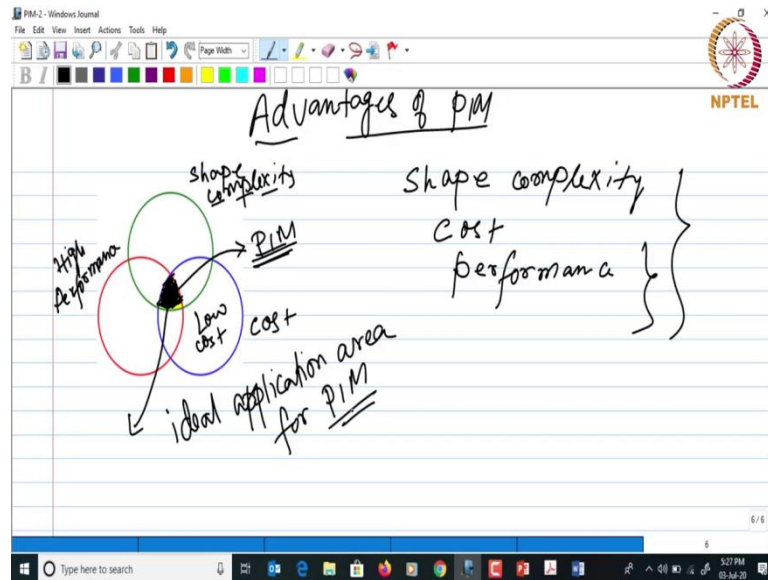 PIM-2 - Windows Journal
File Edit View Insert Actions Tools Help
Page Width
B I
NPTEL
Advantages of PIM
shape
complexity
High
Performana
PIM
Low
cost
cost
ideal application area
for PIM
Shape complexity
cost
performana
6/6
6
Type here to search
5:27 PM
03-Jul-20